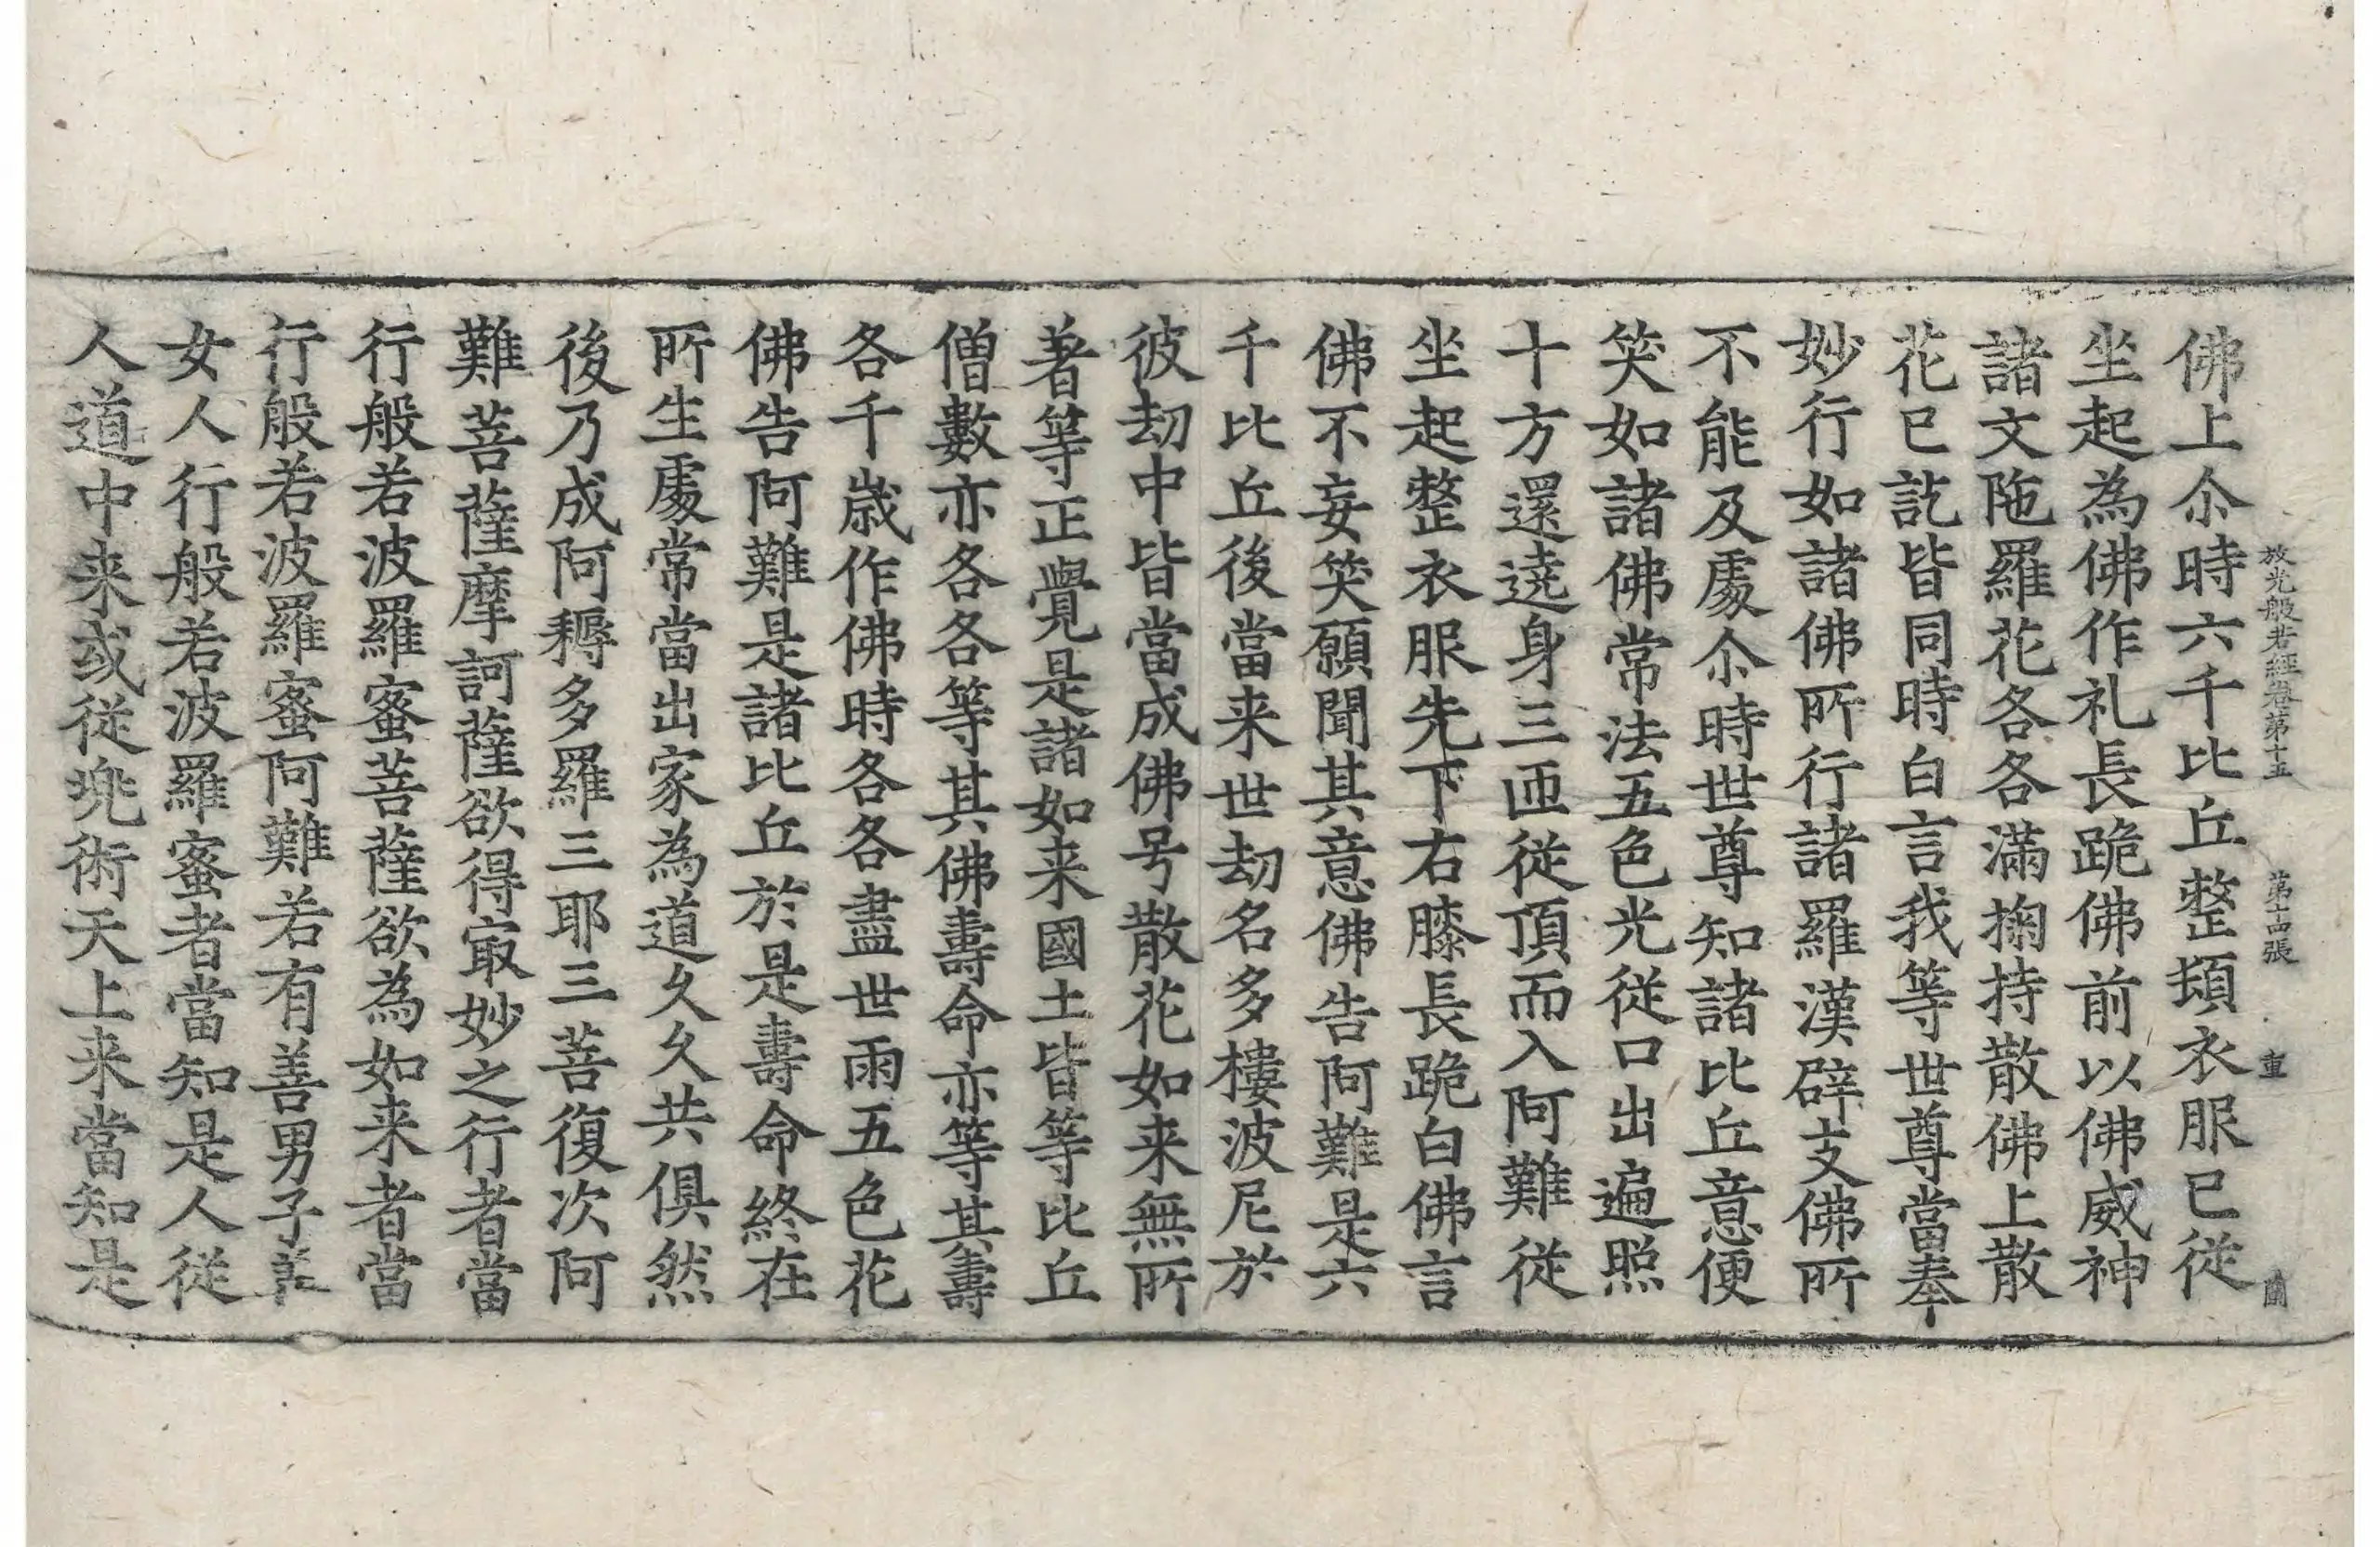 放光般若經卷第十五 第十四張 重 蘭
佛上尒時六千比丘整頓衣服已從
坐起為佛作礼長跪佛前以佛威神
諸文陁羅花各各滿掬持散佛上散
花已訖皆同時白言我等世尊當奉
妙行如諸佛所行諸羅漢辟支佛所
不能及處尒時世尊知諸比丘意便
笑如諸佛常法五色光從口出遍照
十方還遶身三匝從頂而入阿難從
坐起整衣服先下右膝長跪白佛言
佛不妄笑願聞其意佛告阿難是六
千比丘後當来世劫名多樓波尼於
彼劫中皆當成佛号散花如来無所
著等正覺是諸如来國土皆等比丘
僧數亦各各等其佛壽命亦等其壽
各千歲作佛時各各盡世雨五色花
佛告阿難是諸比丘於是壽命終在
所生處常當出家為道久久共俱然
後乃成阿耨多羅三耶三菩復次阿
難菩薩摩訶薩欲得㝡妙之行者當
行般若波羅蜜菩薩欲為如来者當
行般若波羅蜜阿難若有善男子善
女人行般若波羅蜜者當知是人從
人道中来或從兠術天上来當知是